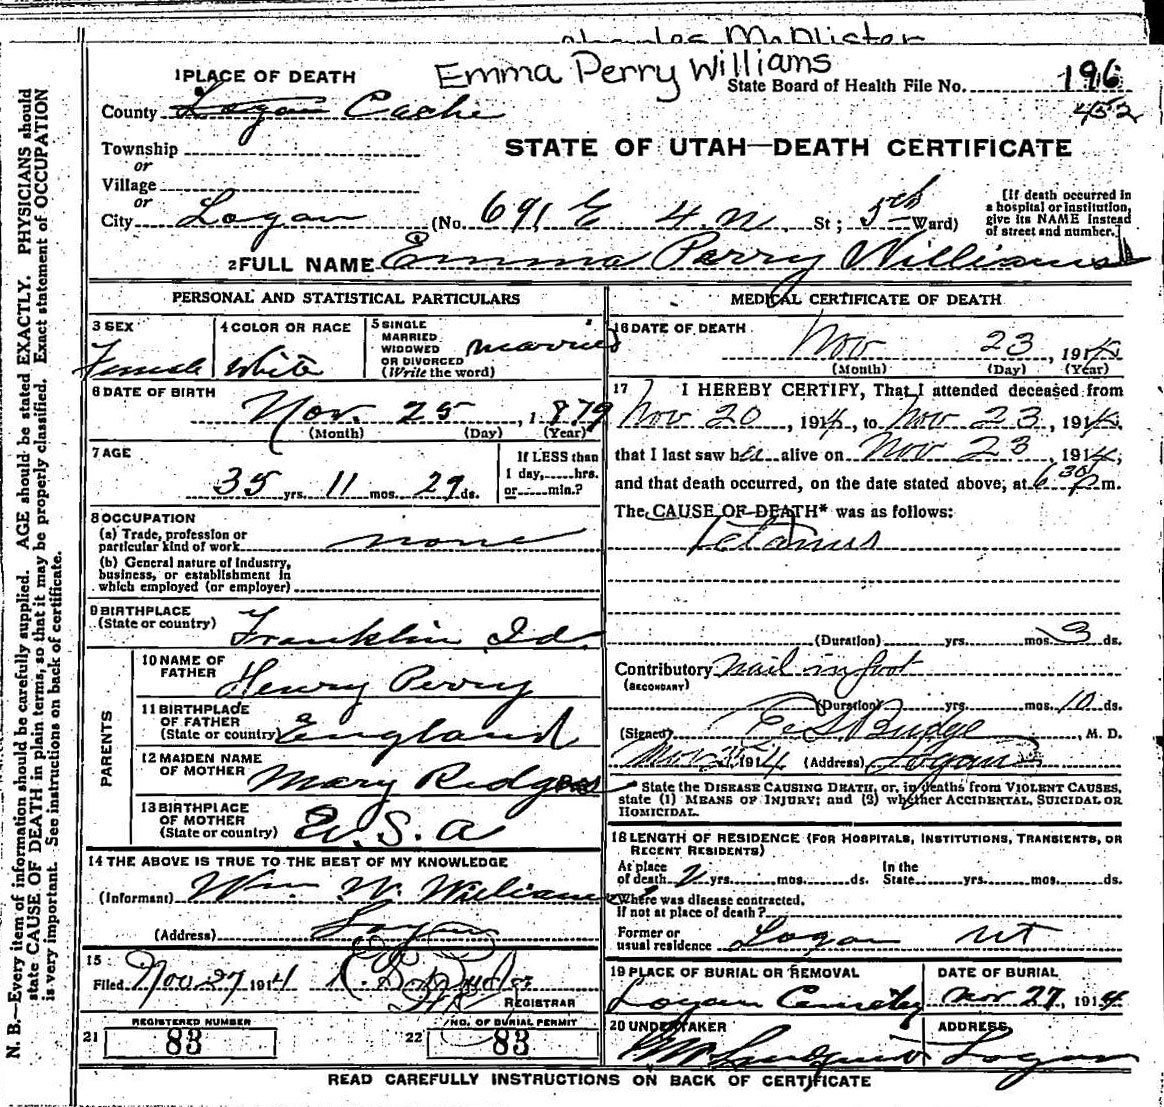 Charles McAlister
Emma Perry Williams
1 PLACE OF DEATH
State Board of Health File No. 196
County Logan Cache
452
STATE OF UTAH—DEATH CERTIFICATE
Township
or
Village
or
City Logan (No. 691 E 4 N. St; 5th Ward)
[If death occurred in
a hospital or institution,
give its NAME instead
of street and number.]
2 FULL NAME Emma Perry Williams
PERSONAL AND STATISTICAL PARTICULARS
3 SEX
Female
4 COLOR OR RACE
White
5 SINGLE
MARRIED
WIDOWED
OR DIVORCED
(Write the word)
married
6 DATE OF BIRTH
Nov. 25, 1879
(Month) (Day) (Year)
7 AGE
35 yrs. 11 mos. 29 ds.
If LESS than
1 day, hrs.
or min.?
8 OCCUPATION
(a) Trade, profession or
particular kind of work none
(b) General nature of industry,
business, or establishment in
which employed (or employer)
9 BIRTHPLACE
(State or country) Franklin, Id.
PARENTS
10 NAME OF
FATHER Henry Perry
11 BIRTHPLACE
OF FATHER
(State or country) England
12 MAIDEN NAME
OF MOTHER Mary
13 BIRTHPLACE
OF MOTHER
(State or country) U.S.A
14 THE ABOVE IS TRUE TO THE BEST OF MY KNOWLEDGE
(Informant) Wm W. Williams
(Address) Logan
15
Filed Nov 27 1914
REGISTRAR
21 REGISTERED NUMBER
83
22 NO. OF BURIAL PERMIT
83
MEDICAL CERTIFICATE OF DEATH
16 DATE OF DEATH
Nov 23, 1914
(Month) (Day) (Year)
17 I HEREBY CERTIFY, That I attended deceased from
Nov 20, 1914, to Nov 23, 1914,
that I last saw her alive on Nov 23 1914,
and that death occurred, on the date stated above, at 6 30 P m.
The CAUSE OF DEATH* was as follows:
Tetanus
(Duration) yrs. mos. 3 ds.
Contributory nail in foot
(SECONDARY)
(Duration) yrs. mos. 10 ds.
(Signed) Budge, M. D.
Nov 1914 (Address) Logan
State the DISEASE CAUSING DEATH, or, in deaths from VIOLENT CAUSES,
state (1) MEANS OF INJURY; and (2) whether ACCIDENTAL, SUICIDAL OR
HOMICIDAL.
18 LENGTH OF RESIDENCE (FOR HOSPITALS, INSTITUTIONS, TRANSIENTS, OR
RECENT RESIDENTS)
At place
of death 2 yrs. mos. ds.
In the
State yrs. mos. ds.
Where was disease contracted,
If not at place of death?
Former or
usual residence Logan Ut
19 PLACE OF BURIAL OR REMOVAL
Logan Cemetery
DATE OF BURIAL
Nov 27, 1914
20 UNDERTAKER
Lundquist
ADDRESS
Logan
READ CAREFULLY INSTRUCTIONS ON BACK OF CERTIFICATE
N. B.—Every item of information should be carefully supplied. AGE should be stated EXACTLY. PHYSICIANS should
state CAUSE OF DEATH in plain terms, so that it may be properly classified. Exact statement of OCCUPATION
is very important. See instructions on back of certificate.